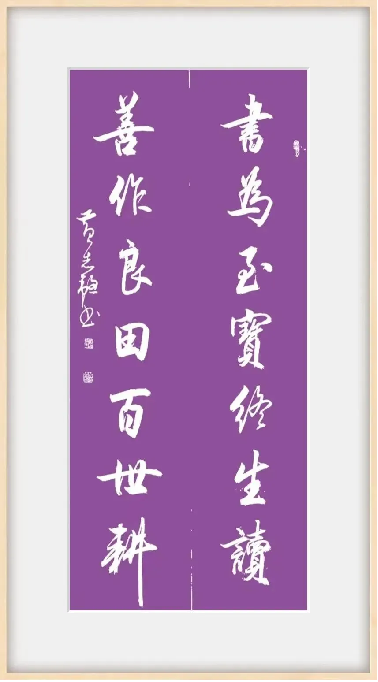 書為至寶終生讀
善作良田百世耕